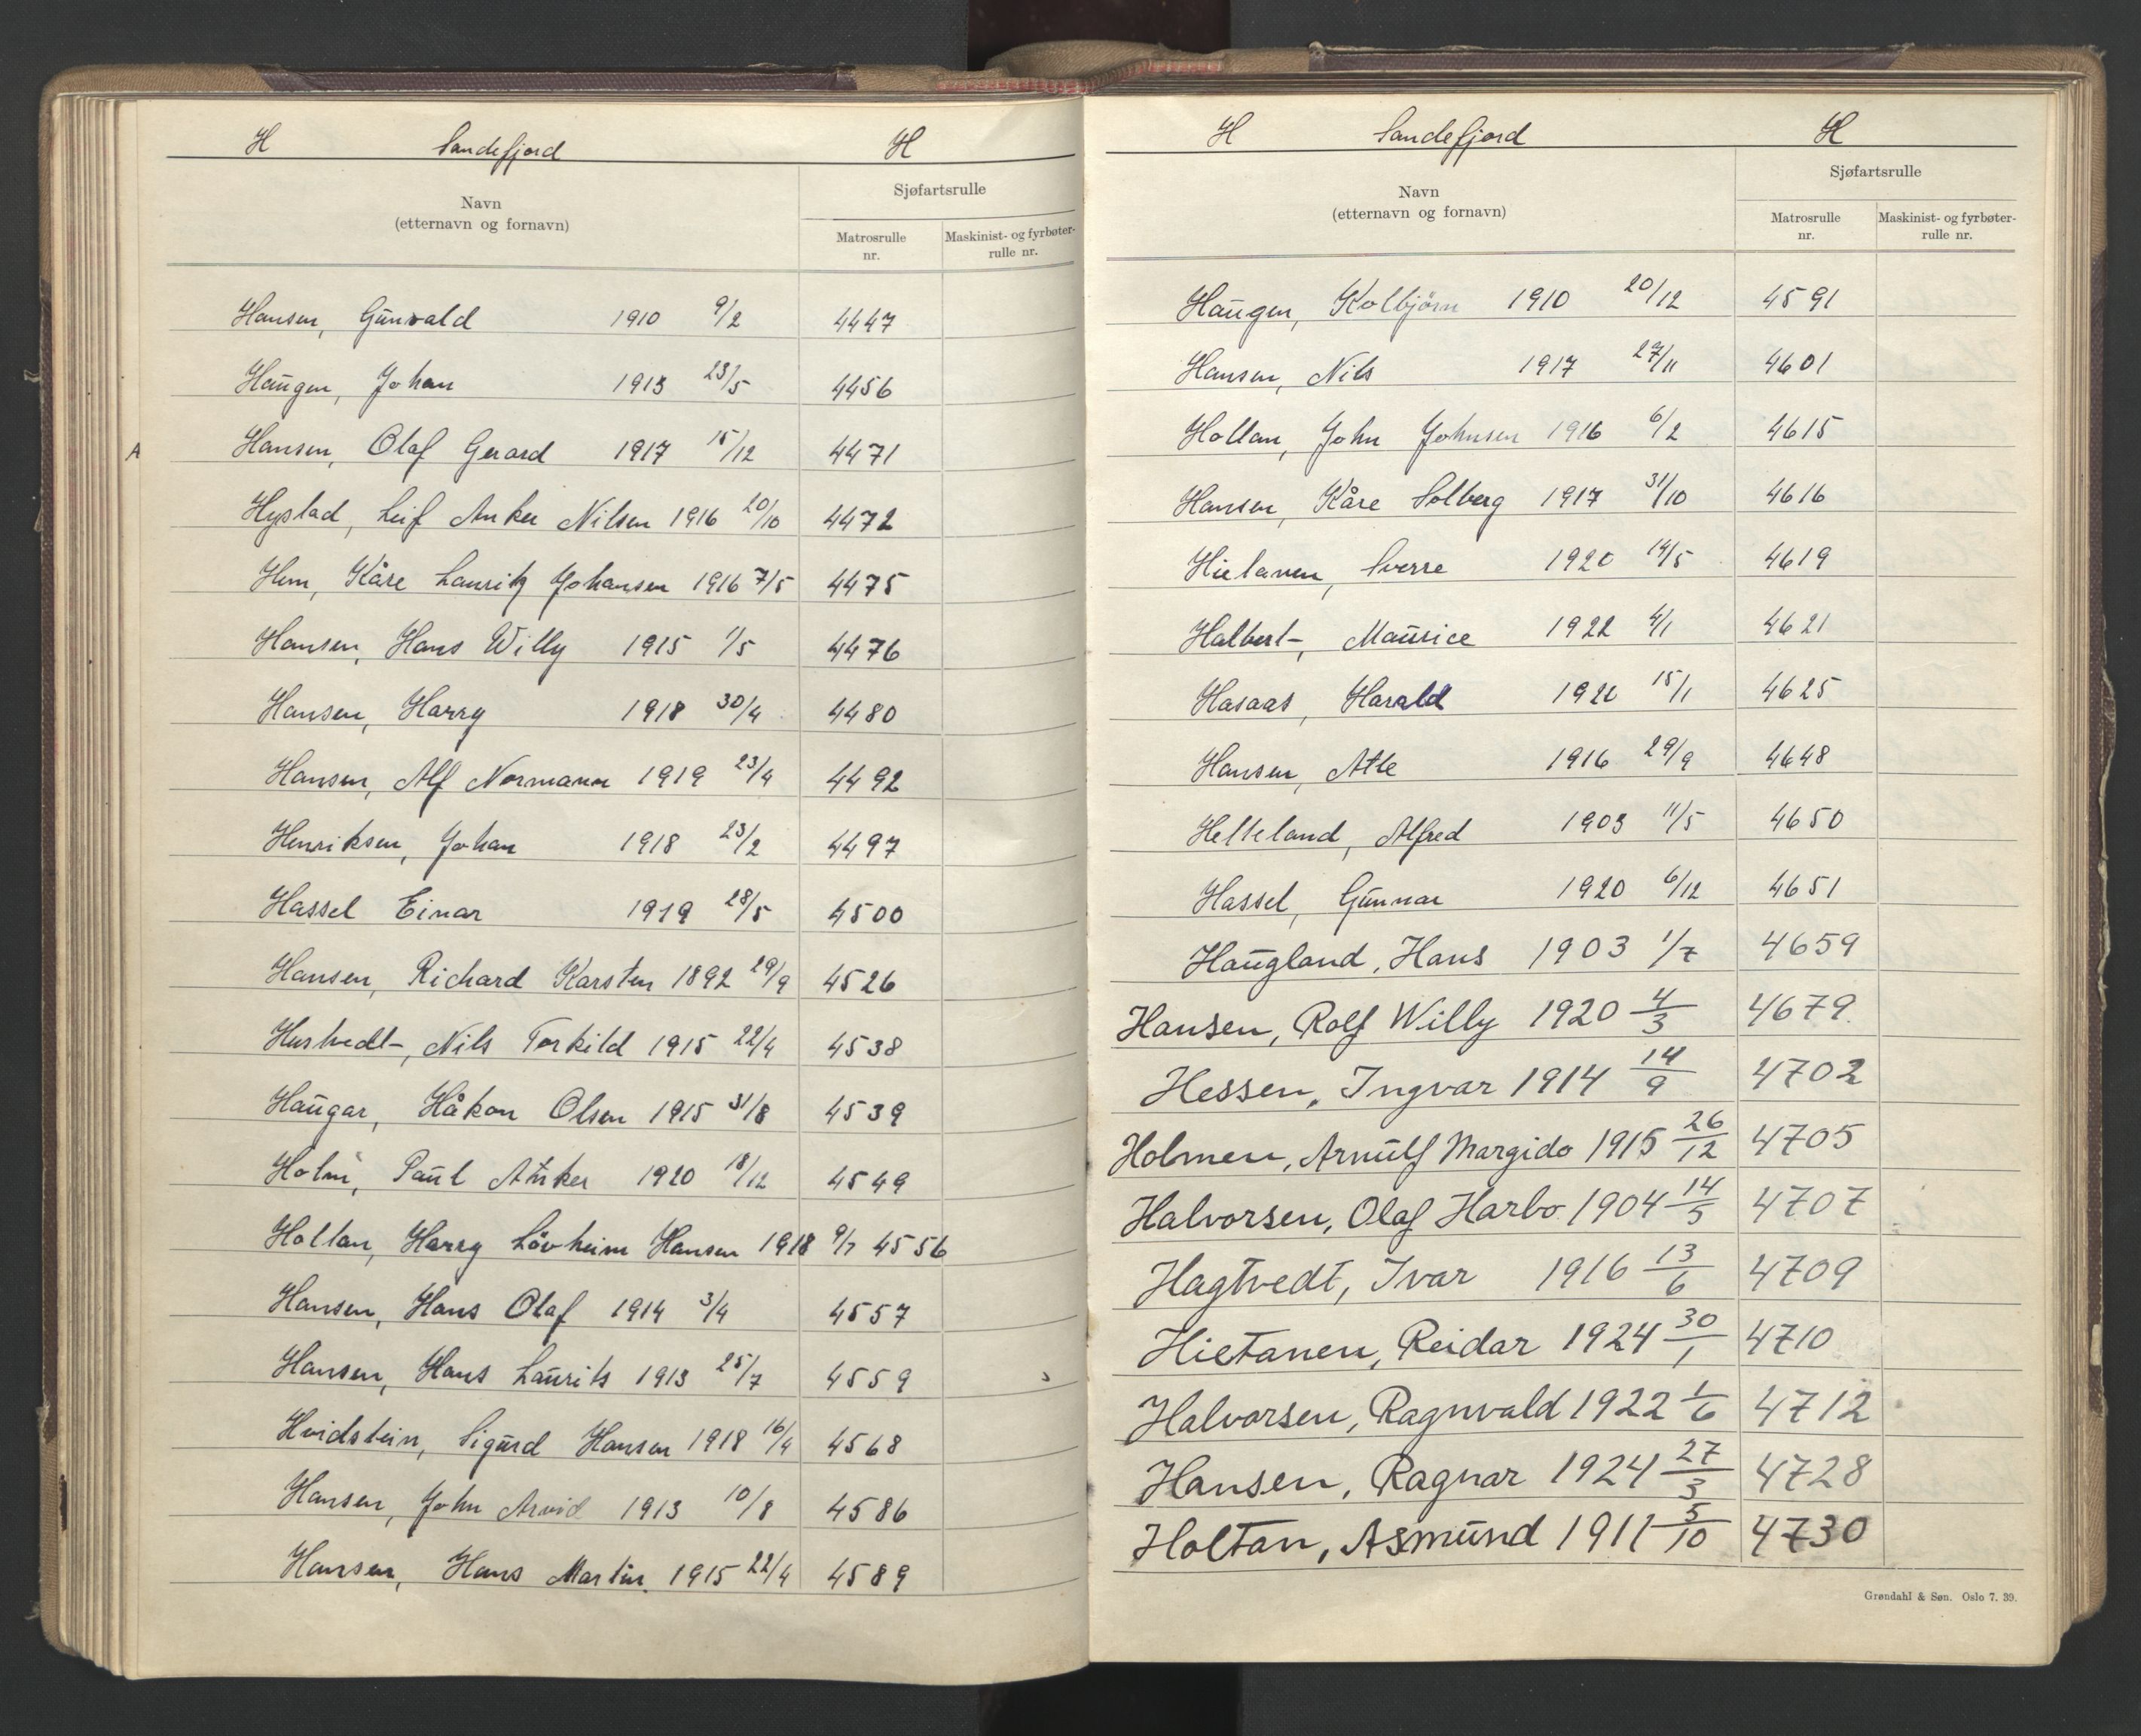 H Sandefjord H
Navn
(etternavn og fornavn)
Sjøfartsrulle
Matrosrulle nr.
Maskinist- og fyrbøter-rulle nr.
Hansen, Gunvald 1910 9/2 4447
Haugen, Johan 1913 23/5 4456
A Hansen, Olaf Gerard 1917 15/12 4471
Hystad, Leif Anker Nilsen 1916 20/10 4472
Hem, Kåre Lauritz Johansen 1916 7/5 4475
Hansen, Hans Willy 1915 1/5 4476
Hansen, Harry 1918 30/4 4480
Hansen, Alf Normann 1919 23/4 4492
Henriksen, Johan 1918 23/2 4497
Hassel Einar 1919 28/5 4500
Hansen, Richard Karsten 1892 29/9 4526
Hustvedt, Nils Torkild 1915 22/4 4538
Haugar, Håkon Olsen 1915 31/8 4539
Holm, Paul Anker 1920 18/12 4549
Holtan, Harry Lövheim Hansen 1918 9/7 4556
Hansen, Hans Olaf 1914 3/4 4557
Hansen, Hans Laurits 1913 25/7 4559
Hvidstein, Sigurd Hansen 1918 16/4 4568
Hansen, John Arvid 1913 10/8 4586
Hansen, Hans Martin. 1915 22/4 4589
H Sandefjord H
Navn
(etternavn og fornavn)
Sjøfartsrulle
Matrosrulle nr.
Maskinist- og fyrbøter-rulle nr.
Haugen, Kolbjörn 1910 20/12 4591
Hansen, Nils 1917 27/11 4601
Holtan, John Johnsen 1916 6/2 4615
Hansen, Kåre Solberg 1917 31/10 4616
Hietanen, Sverre 1920 14/5 4619
Halbert, Maurice 1922 4/1 4621
Hasaas, Harald 15/1 4625
Hansen, Atle 1916 29/9 4648
Helleland, Alfred 1903 11/5 4650
Hassel, Gunnar 1920 6/12 4651
Haugland, Hans 1903 1/7 4659
Hansen, Rolf Willy 1920 4/3 4679.
Hessen, Ingvar 1914 14/9 4702
Holmen, Arnulf Margido 1915 26/12 4705
Halvorsen, Olaf Harbo 1904 14/5 4707
Hagtvedt, Ivar 1916 13/6 4709
Hietanen, Reidar 1924 30/1 4710
Halvorsen, Ragnvald 1922 1/6 4712
Hansen, Ragnar 1924 27/3 4728
Holtan, Asmund 1911 5/10 4730
Grøndahl & Søn. Oslo 7. 39.